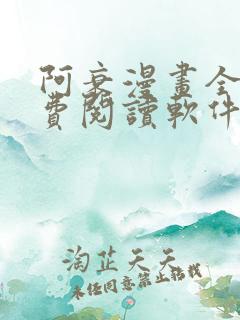 阿衰漫畫全
費閱讀軟件
淘芷天天
未经同意禁止转载